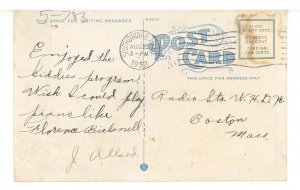 5-782
THIS SPACE FOR WRITING MESSAGES.
POST CARD
AUG
3-PM
1930
PLACE
STAMP HERE
DOMESTIC
ONE CENT
FOREIGN
TWO CENTS
THIS SPACE FOR ADDRESS ONLY.
Enjoyed the
kiddies program!
Wish I could play
piano like
Florence
J. Allard.
Radio Sta. W.H.D.H.
Boston
Mass.